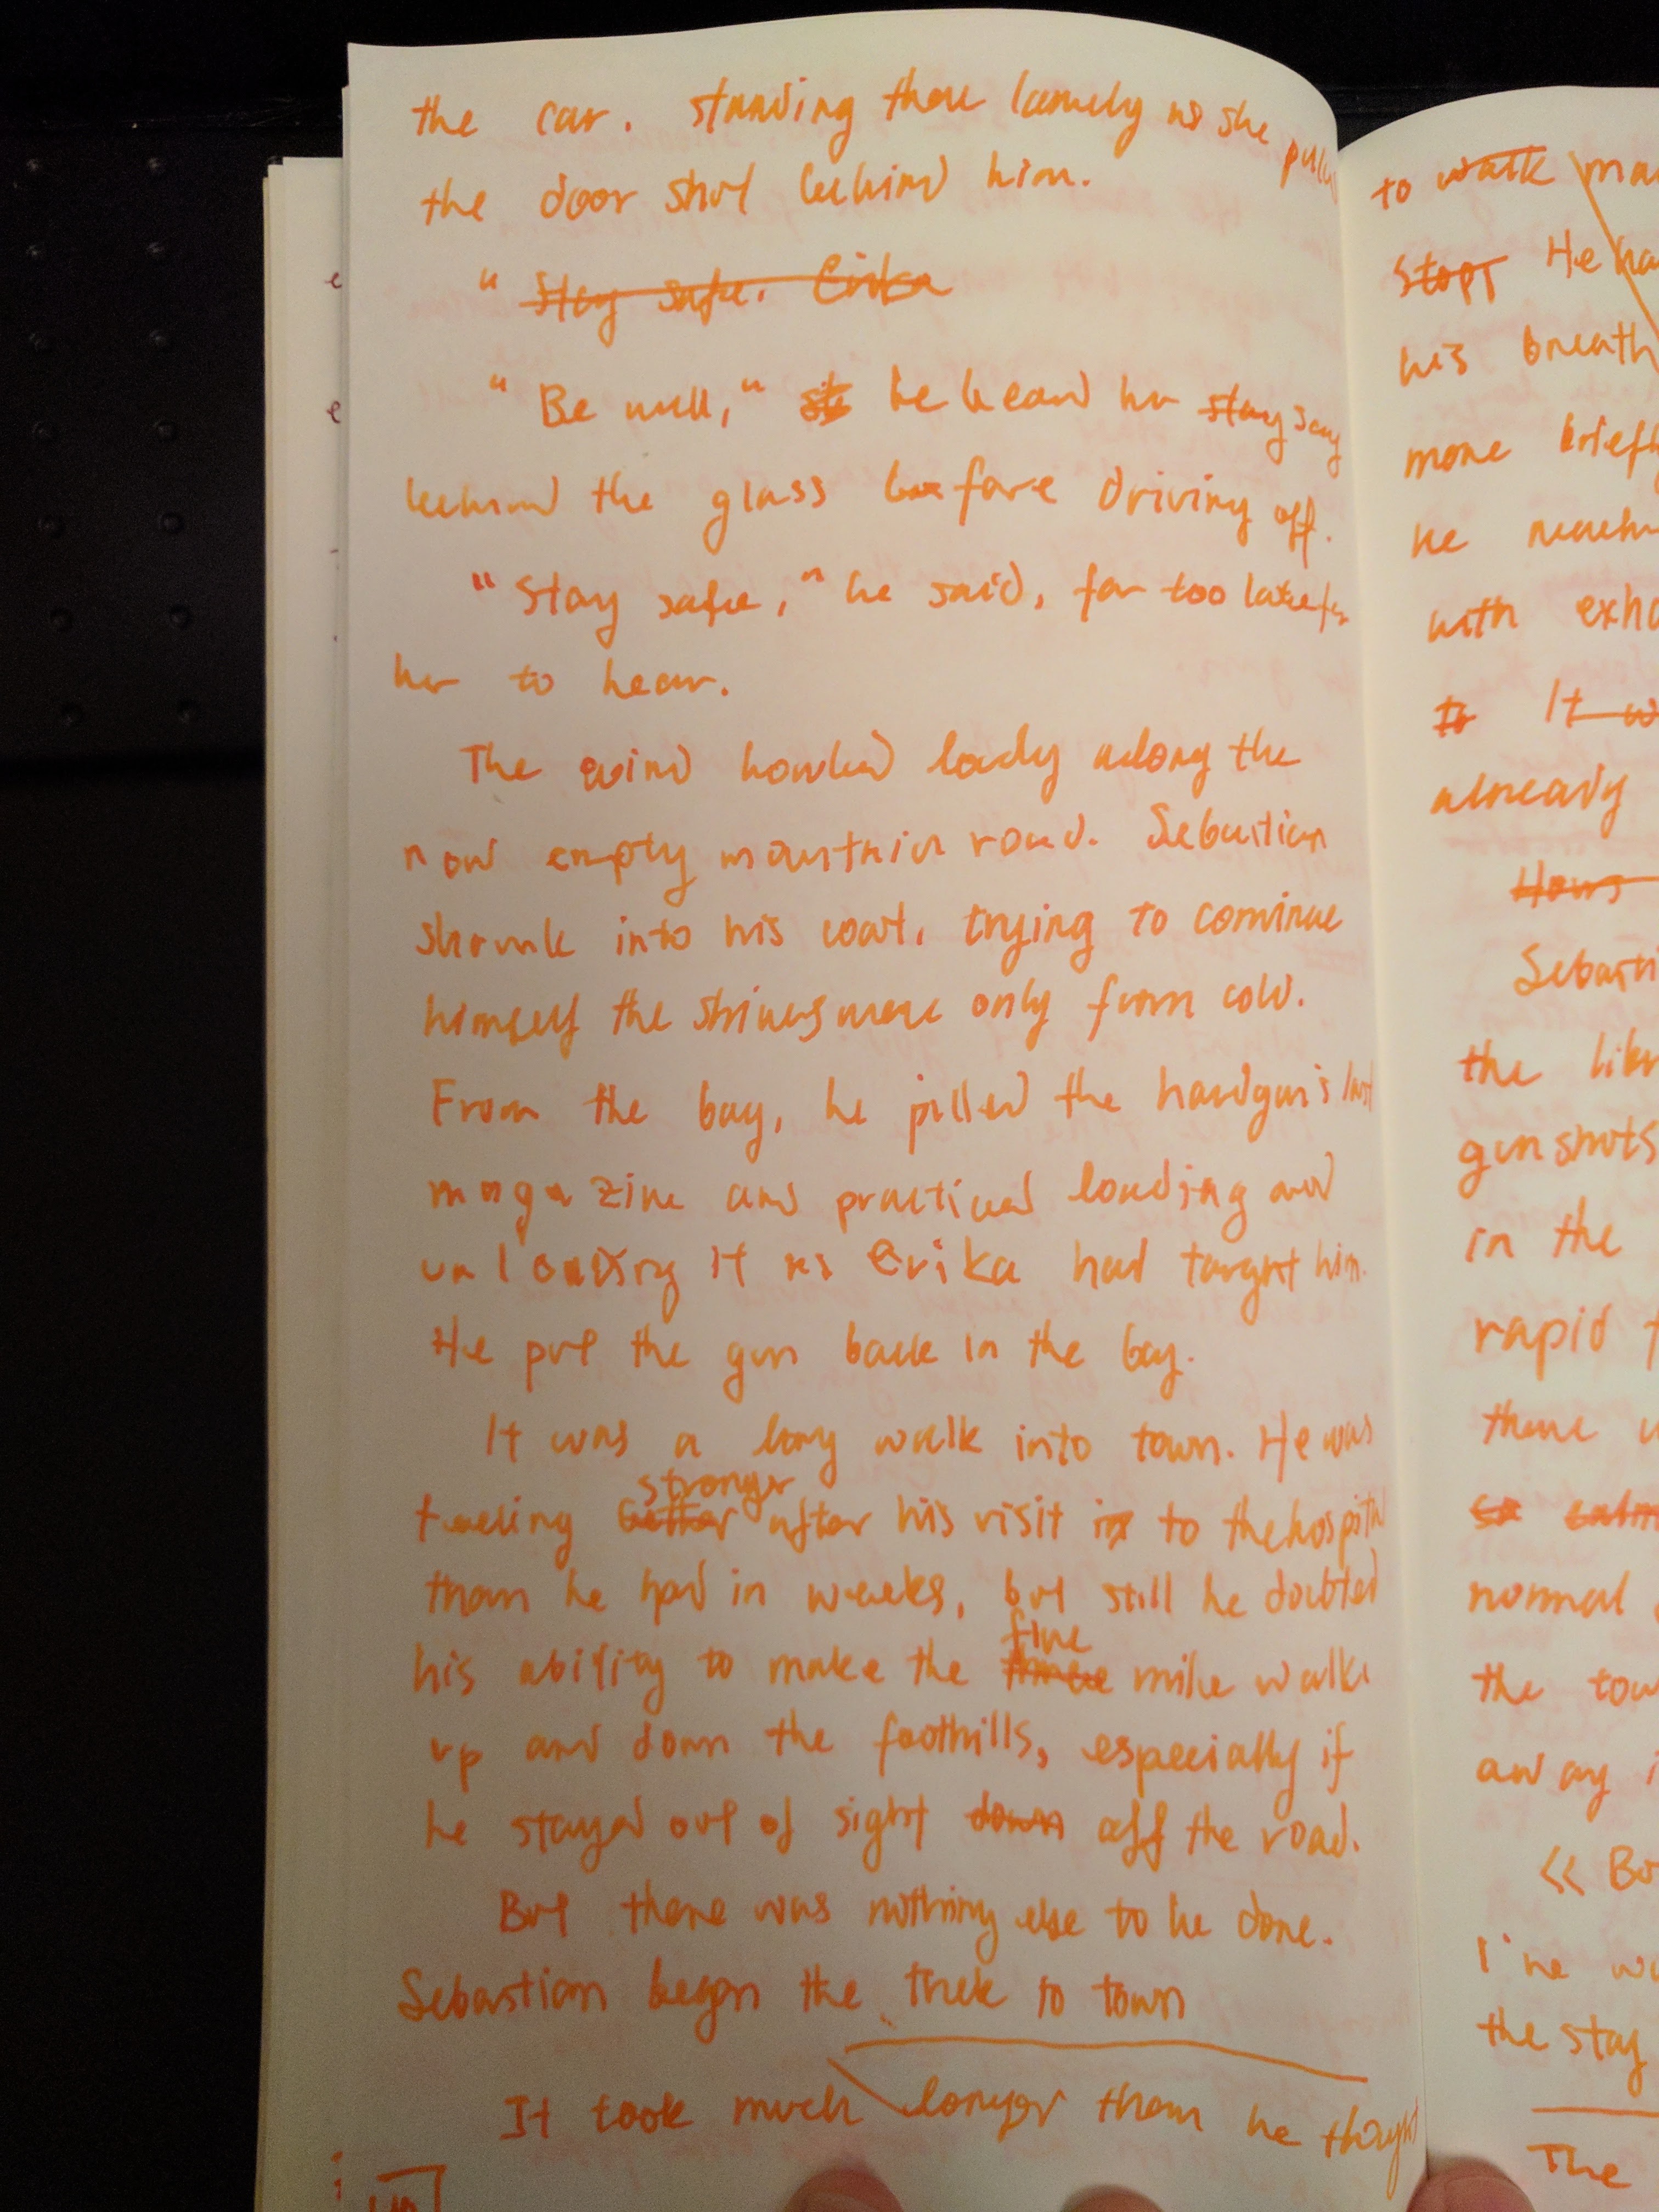 the car. standing there lamely as she
the door shut behind him.
" Stay safe. Erika
" Be well," he heard her stay say
behind the glass before driving off.
"Stay safe," he said, far too late for
her to hear.
The wind howled loudly along the
now empty mountain road. Sebastian
shrunk into his coat, trying to convince
himself the shivers were only from cold.
From the bag, he pulled the handgun's last
magazine and practiced loading and
unloading it as Erika had taught him.
He put the gun back in the bag.
It was a long walk into town. He was
stronger
feeling better after his visit in to the hospital
than he had in weeks, but still he doubted
five
his ability to make the three mile walk
up and down the foothills, especially if
he stayed out of sight down off the road.
But there was nothing else to be done.
Sebastian began the trek to town
It took much longer than he thought
to walk
stopt He
his breath
more
he
with
It
already
Hours
the
gunshots
in the
rapid
there
normal
the
away
« 
I've
the stay
The